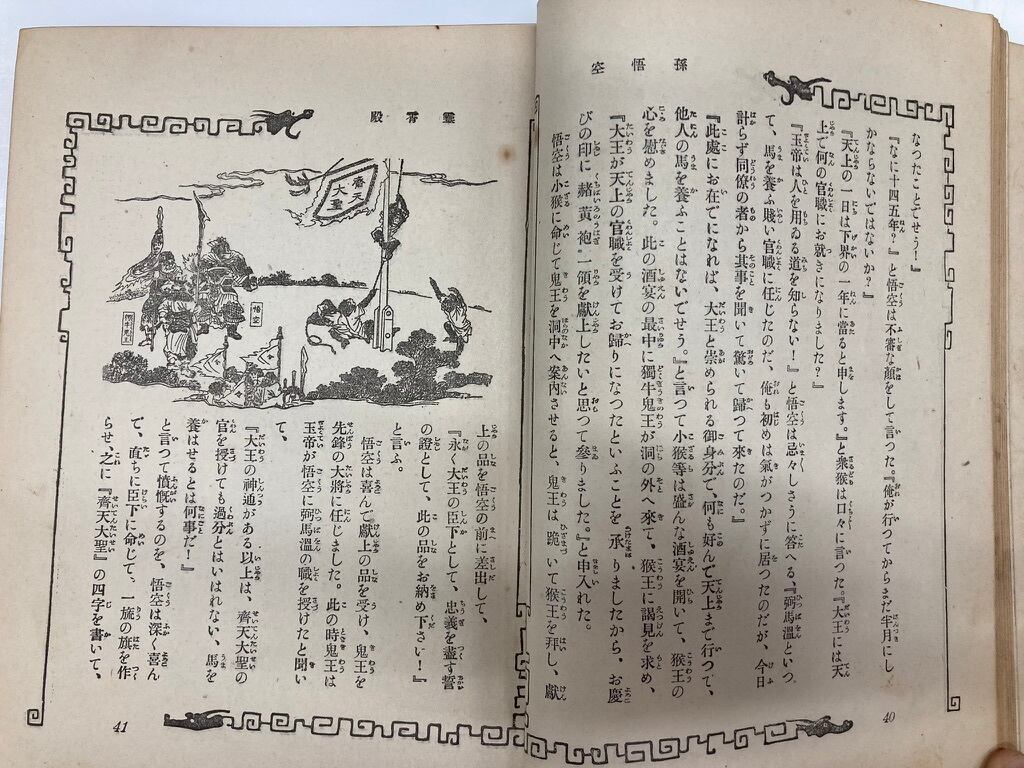 孫悟空
なつたことでせう！』
『なに十四五年？』と悟空は不審な顔をして言った。『俺が行つてからまだ半月にし
かならないではないか？』
『天上の一日は下界の一年に當ると申します。』と衆猴は口々に言つた。『大王には天
上で何の官職にお就きになりました？』
『玉帝は人を用ゐる道を知らない！』と悟空は忌々しさうに答へる、『弼馬溫といつ
て、馬を養ふ賤い官職に任じたのだ、俺も初めは氣がつかずに居つたのだが、今日
計らず同僚の者から其事を聞いて驚いて歸つて來たのだ。』
『此處にお在でになれば、大王と崇められる御身分で、何も好んで天上まで行つて、
他人の馬を養ふことはないでせう。』と言つて小猴等は盛んな酒宴を開いて、猴王の
心を慰めました。此の酒宴の最中に獨牛鬼王が洞の外へ來て、猴王に謁見を求め、
『大王が天上の官職を受けてお歸りになつたといふことを承りましたから、お慶
びの印に赭黃袍一領を獻上したいと思つて參りました。』と申入れた。
悟空は小猴に命じて鬼王を洞中へ案內させると、鬼王は跪いて猴王を拜し、獻
40
靈霄殿
齊天
大聖
悟空
獨牛鬼王
上の品を悟空の前に差出して、
『永く大王の臣下として、忠義を盡す誓
の證として、此の品をお納め下さい！』
と言ふ。
悟空は喜んで獻上の品を受け、鬼王を
先鋒の大將に任じました。此の時鬼王は
玉帝が悟空に弼馬溫の職を授けたと聞い
て、
『大王の神通がある以上は、齊天大聖の
官を授けても過分とはいはれない、馬を
養はせるとは何事だ！』
と言つて憤慨するのを、悟空は深く喜ん
で、直ちに臣下に命じて、一旒の旗を作
らせ、之に『齊天大聖』の四字を書いて、
41